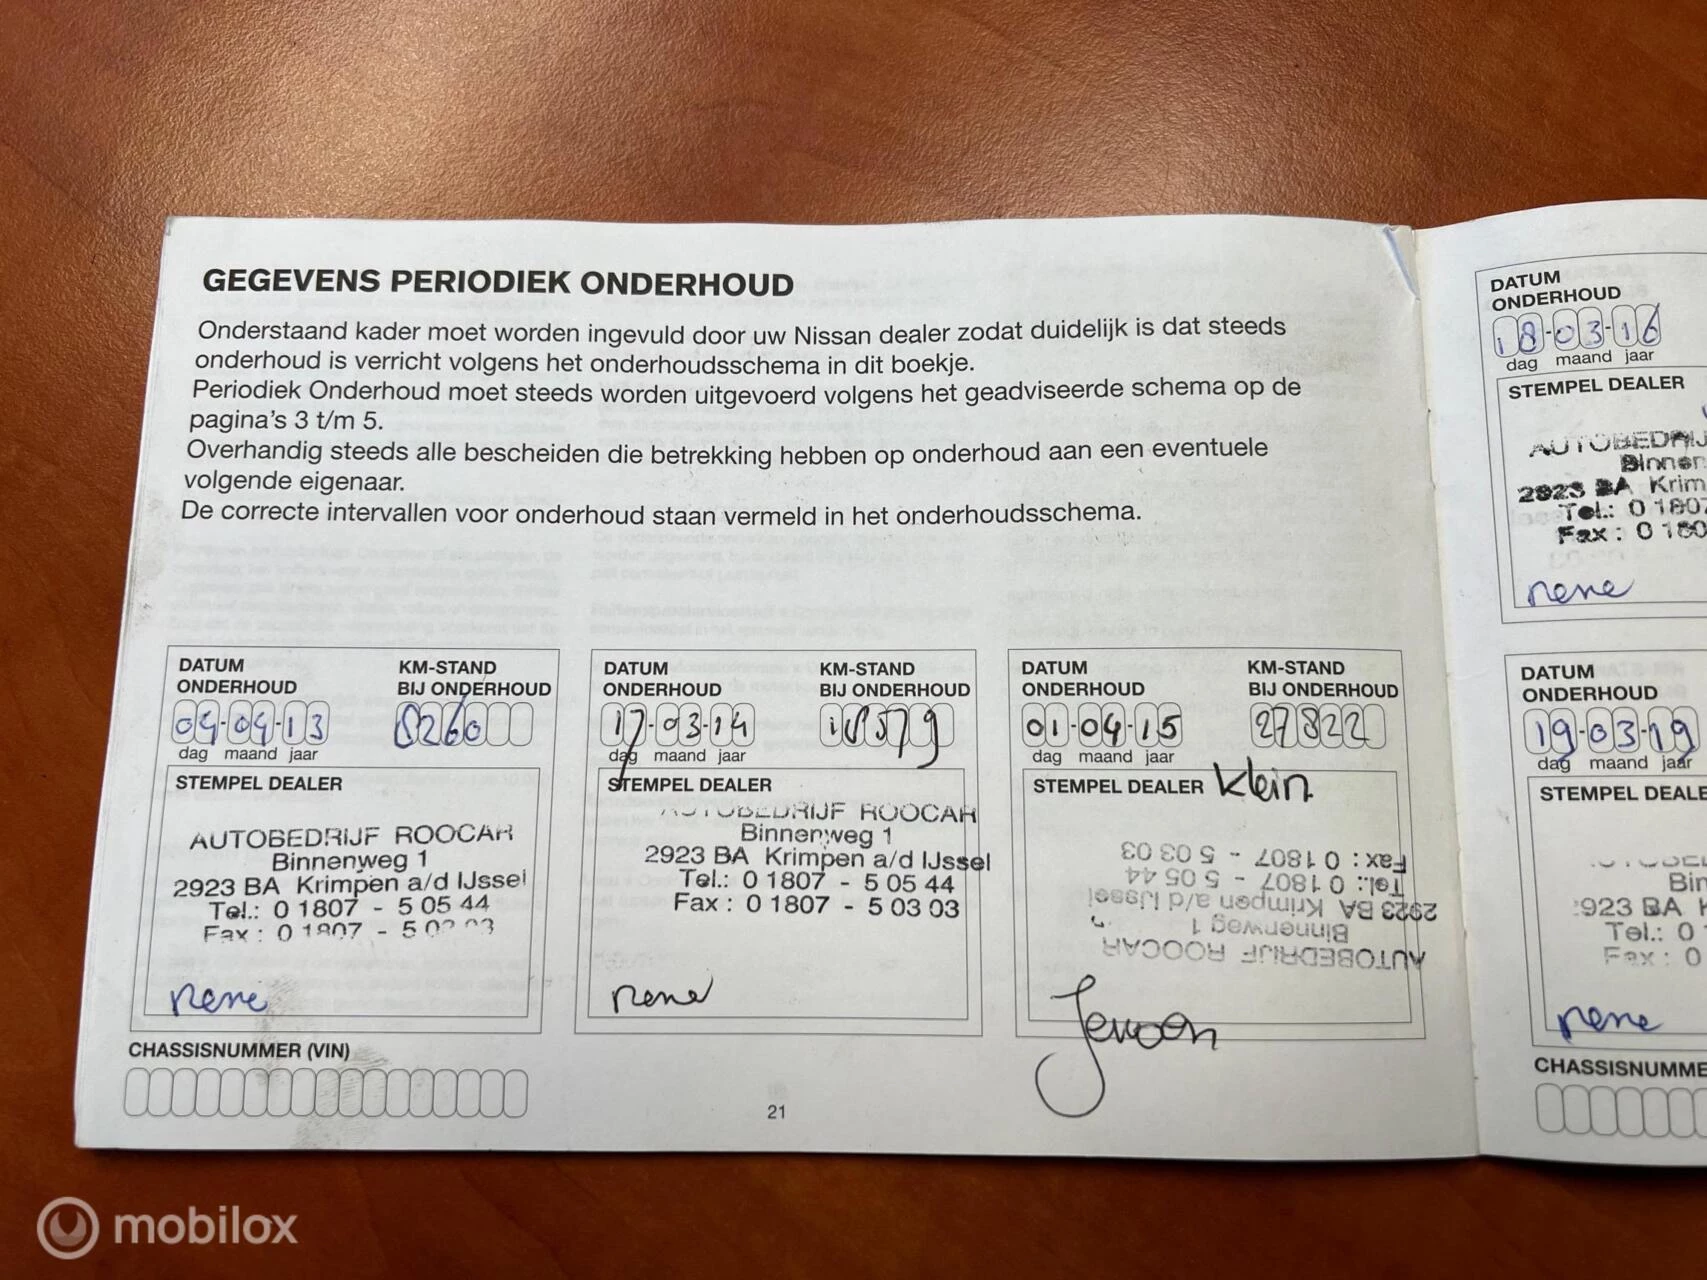 GEGEVENS PERIODIEK ONDERHOUD
Onderstaand kader moet worden ingevuld door uw Nissan dealer zodat duidelijk is dat steeds
onderhoud is verricht volgens het onderhoudsschema in dit boekje.
Periodiek Onderhoud moet steeds worden uitgevoerd volgens het geadviseerde schema op de
pagina's 3 t/m 5.
Overhandig steeds alle bescheiden die betrekking hebben op onderhoud aan een eventuele
volgende eigenaar.
De correcte intervallen voor onderhoud staan vermeld in het onderhoudsschema.
DATUM
ONDERHOUD
KM-STAND
BIJ ONDERHOUD
04-04-13
8260
dag maand jaar
STEMPEL DEALER
AUTOBEDRIJF ROOCAR
Binnenweg 1
2923 BA Krimpen a/d IJssel
Tel.: 0 1807 - 5 05 44
Fax : 0 1807 - 5 03 03
rene
CHASSISNUMMER (VIN)
DATUM
ONDERHOUD
KM-STAND
BIJ ONDERHOUD
17-03-14
18579
dag maand jaar
STEMPEL DEALER
AUTOBEDRIJF ROOCAR
Binnenweg 1
2923 BA Krimpen a/d IJssel
Tel.: 0 1807 - 5 05 44
Fax : 0 1807 - 5 03 03
rene
DATUM
ONDERHOUD
KM-STAND
BIJ ONDERHOUD
01-04-15
27822
dag maand jaar
STEMPEL DEALER Klein
AUTOBEDRIJF ROOCAR
Binnenweg 1
2923 BA Krimpen a/d IJssel
Tel.: 0 1807 - 5 05 44
Fax : 0 1807 - 5 03 03
Jeroon
21
DATUM
ONDERHOUD
18-03-16
dag maand jaar
STEMPEL DEALER
AUTOBEDRIJ
Binnen
2923 BA Krim
Tel.: 0 1807
Fax : 0 180
rene
DATUM
ONDERHOUD
19-03-19
dag maand jaar
STEMPEL DEALE
Bin
2923 BA K
Tel.: 0
Fax : 0
rene
CHASSISNUMME
mobilox